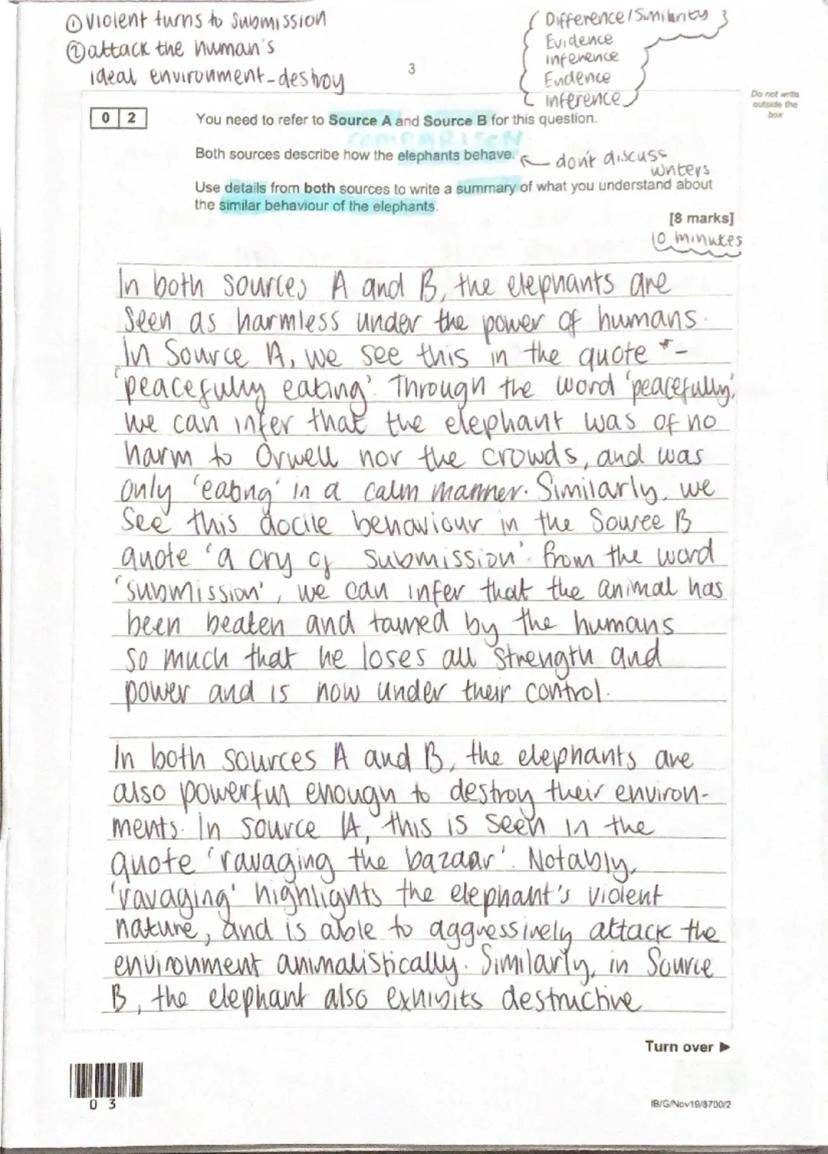 ① violent turns to submission
② attack the human's
ideal environment - destroy
Difference/Similarity
Evidence
inference
Evidence
inference
3
Do not write
outside the
box
0 2
You need to refer to Source A and Source B for this question.
COMPARISON
Both sources describe how the elephants behave.
don't discuss
writers
Use details from both sources to write a summary of what you understand about
the similar behaviour of the elephants.
[8 marks]
10 minutes
In both sources A and B, the elephants are
seen as harmless under the power of humans.
In Source A, we see this in the quote -
'peacefully eating'. Through the word 'peacefully',
we can infer that the elephant was of no
harm to Orwell nor the crowds, and was
only 'eating' in a calm manner. Similarly, we
see this docile behaviour in the Source B
quote 'a cry of submission'. From the word
'submission', we can infer that the animal has
been beaten and tamed by the humans
so much that he loses all strength and
power and is now under their control.
In both sources A and B, the elephants are
also powerful enough to destroy their environ-
ments. In source A, this is seen in the
quote 'ravaging the bazaar'. Notably,
'ravaging' highlights the elephant's violent
nature, and is able to aggressively attack the
environment animalistically. Similarly, in Source
B, the elephant also exhibits destructive
Turn over ►
0 3
IB/G/Nov19/8700/2